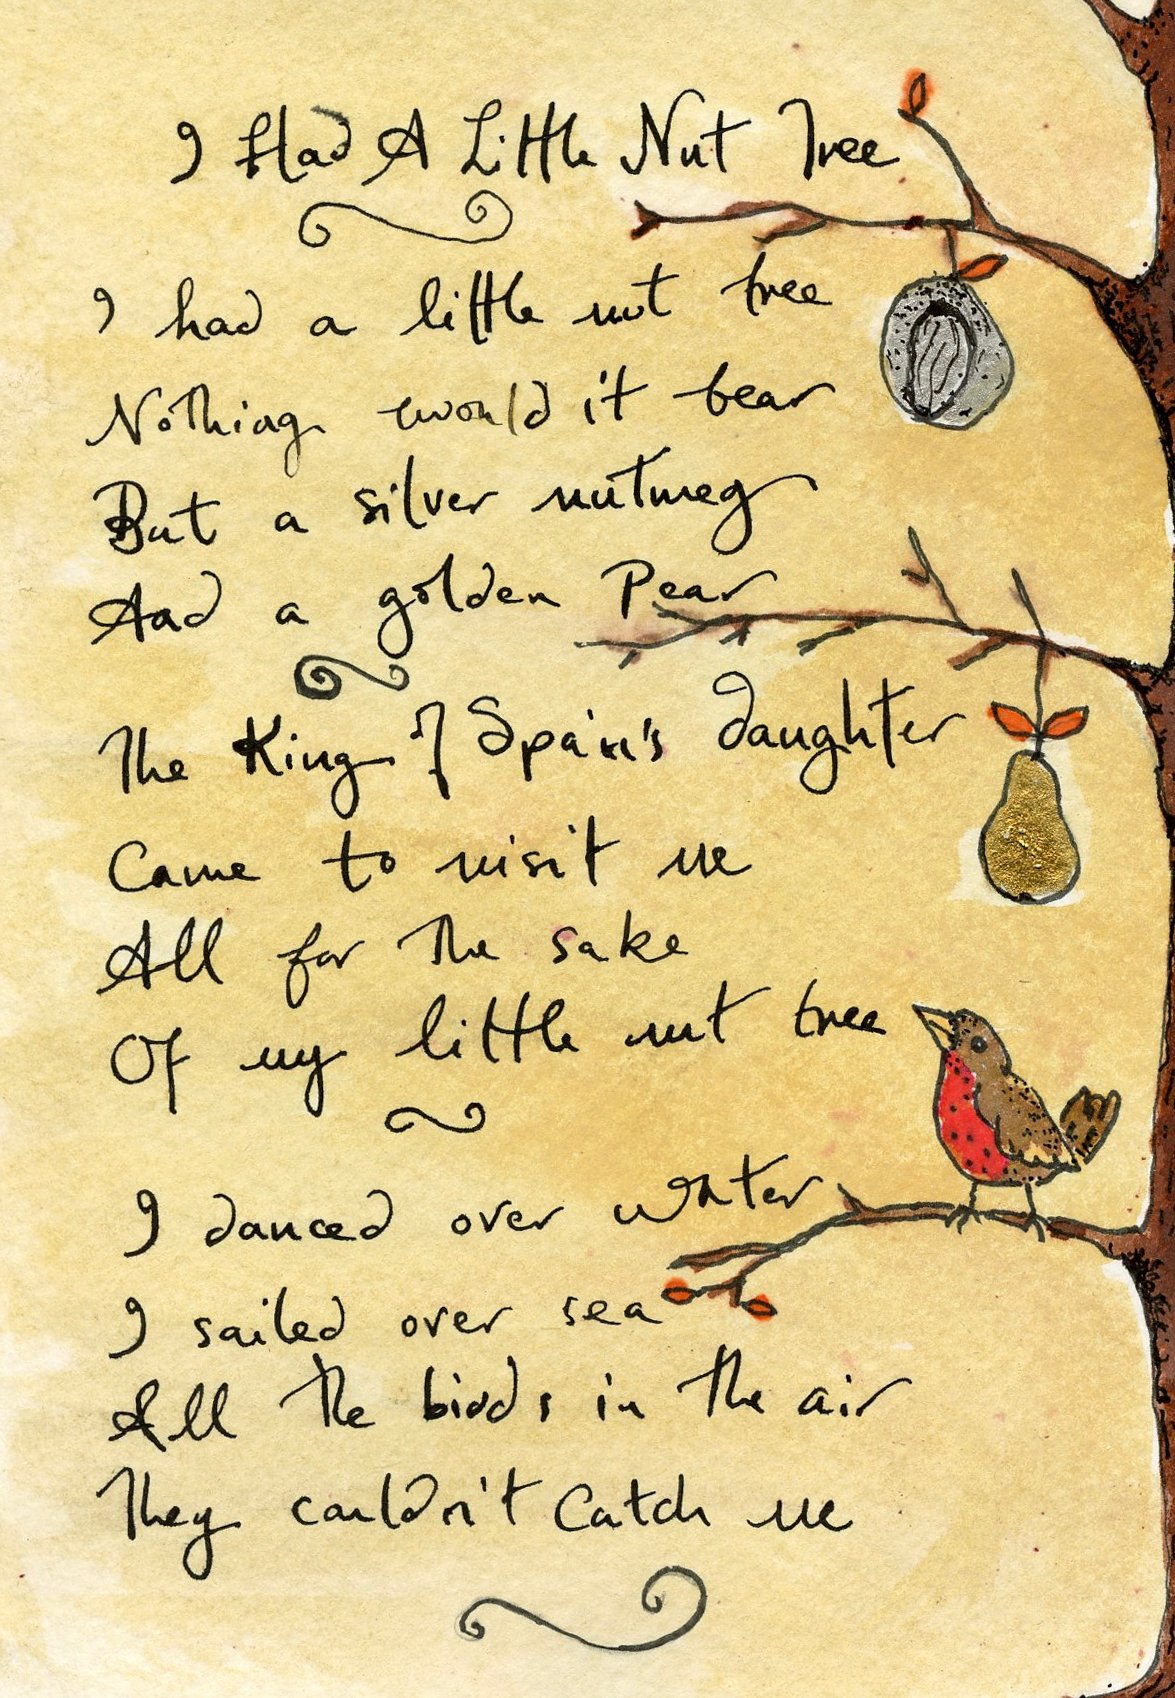 I Had A Little Nut Tree
I had a little nut tree
Nothing would it bear
But a silver nutmeg
And a golden Pear
The King of Spain's daughter
Came to visit me
All for the sake
Of my little nut tree
I danced over water
I sailed over sea
All the birds in the air
They couldn't Catch me